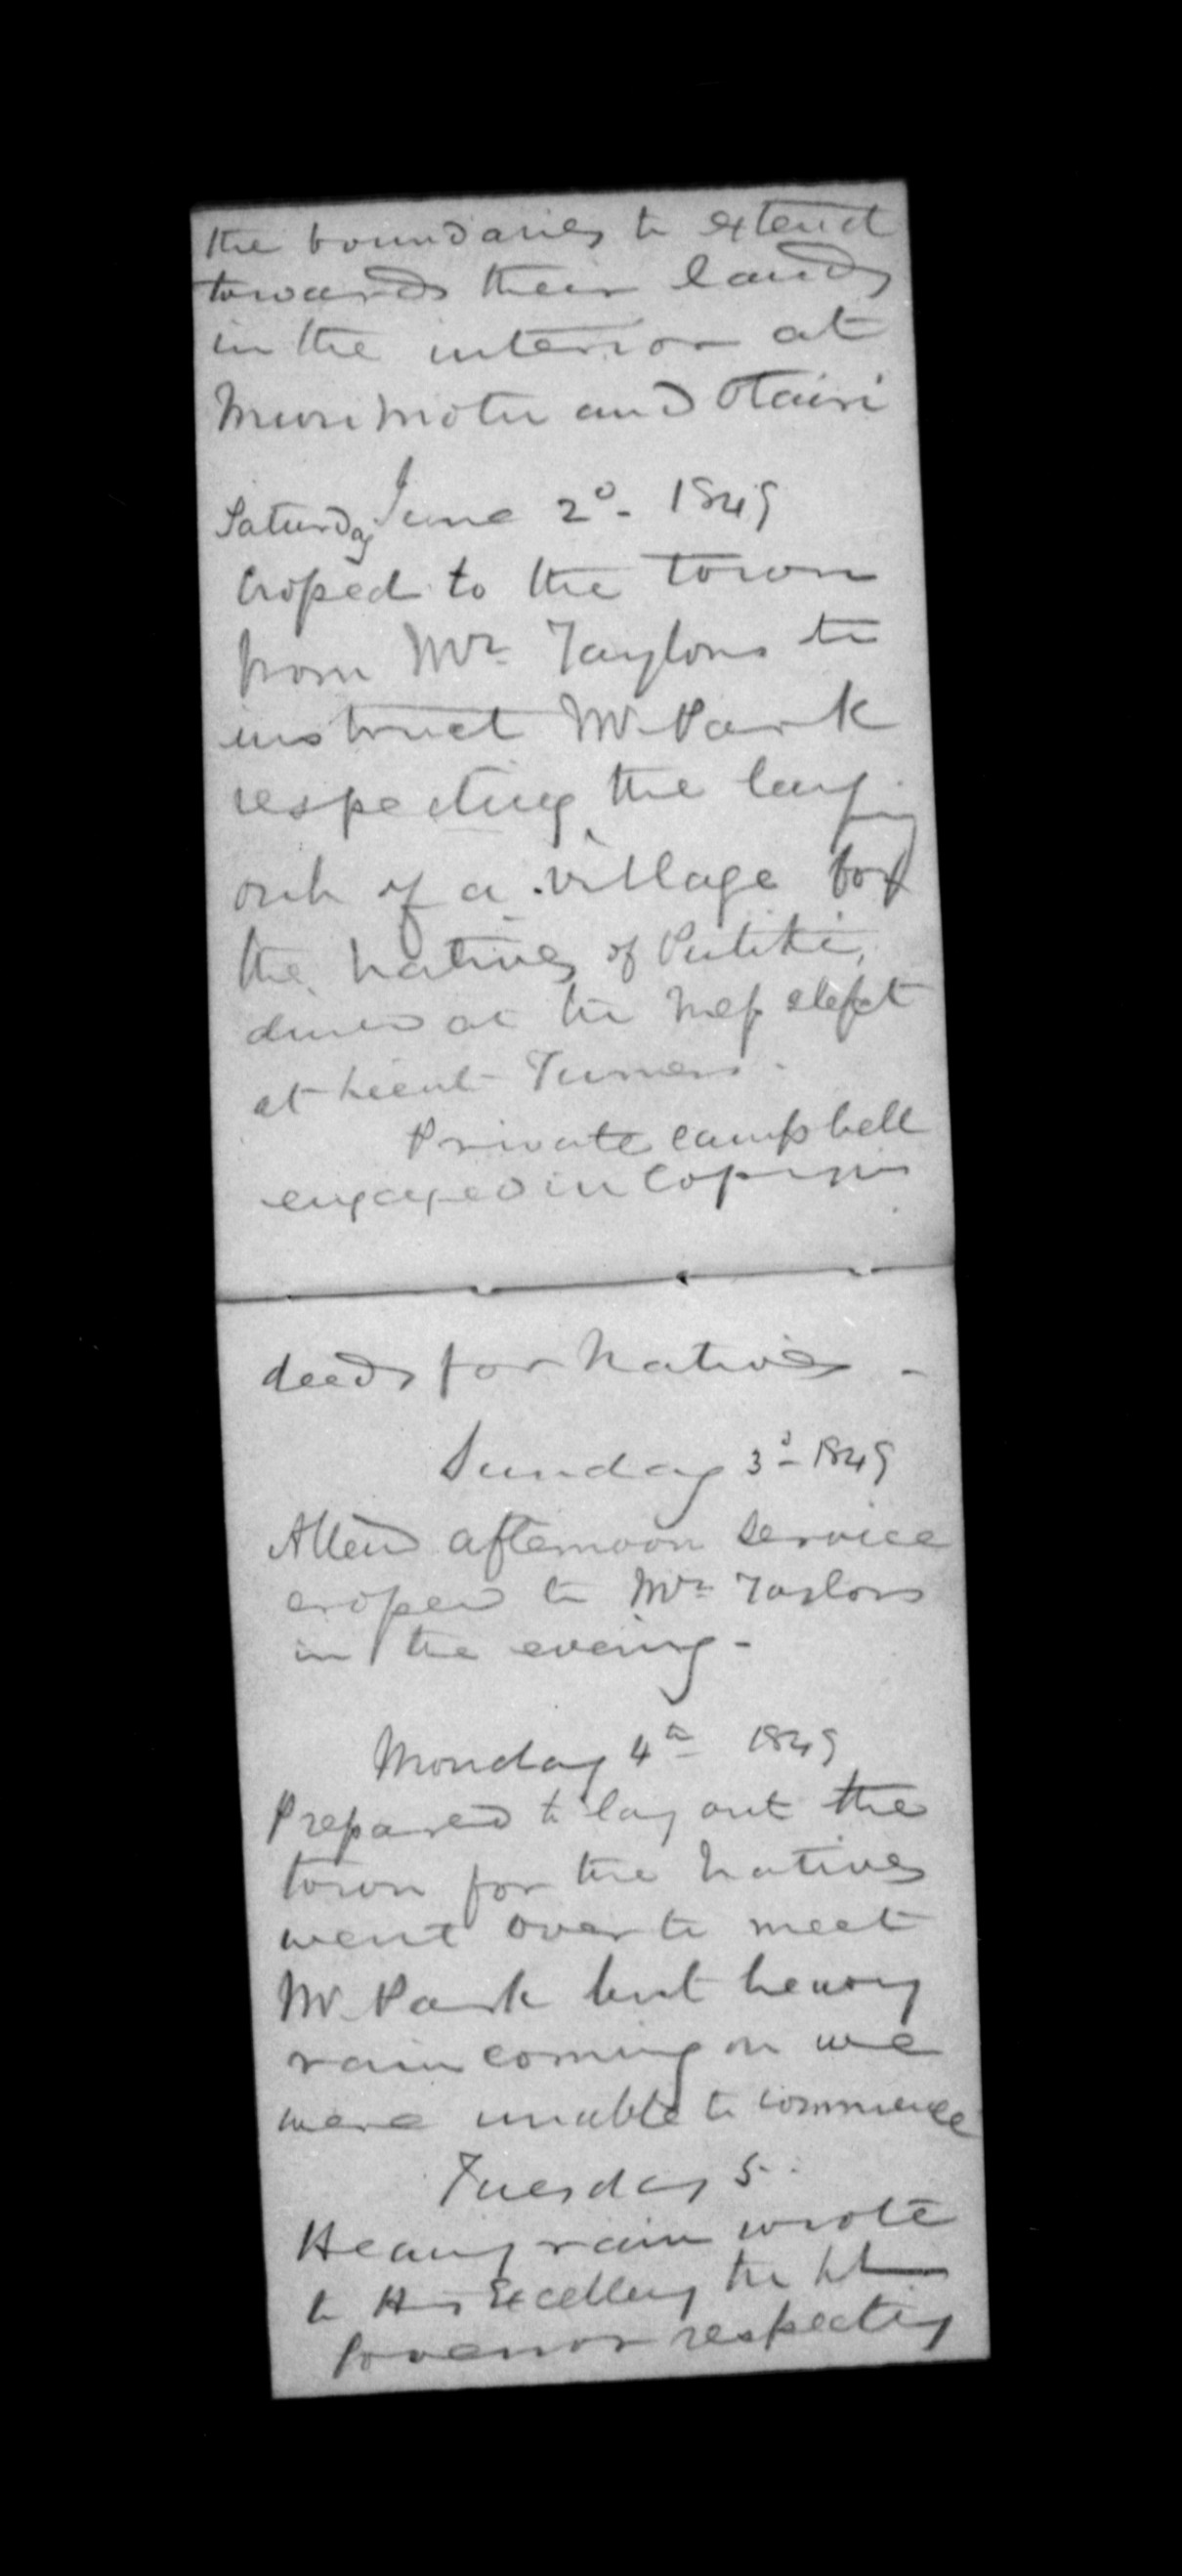 the boundaries to extend
towards their lands
in the interior at
Murimotu and Otairi
Saturday June 2d. 1849
Croped to the town
from Mr. Taylors to
instruct Mr. Park
respecting the laying
out of a village for
the natives of Putiki,
dined at the mess slept
at Lieut Turners.
Private Campbell
engaged in Copying
deeds for natives -
Sunday 3d 1849
Attend afternoon service
croped to Mr. Taylors
in the evening -
Monday 4th 1849
Prepared to lay out the
town for the natives
went over to meet
Mr. Park but heavy
rain coming on we
were unable to commence
Tuesday 5.
Heavy rain wrote
to His Excellency the Lt
Governor respecting